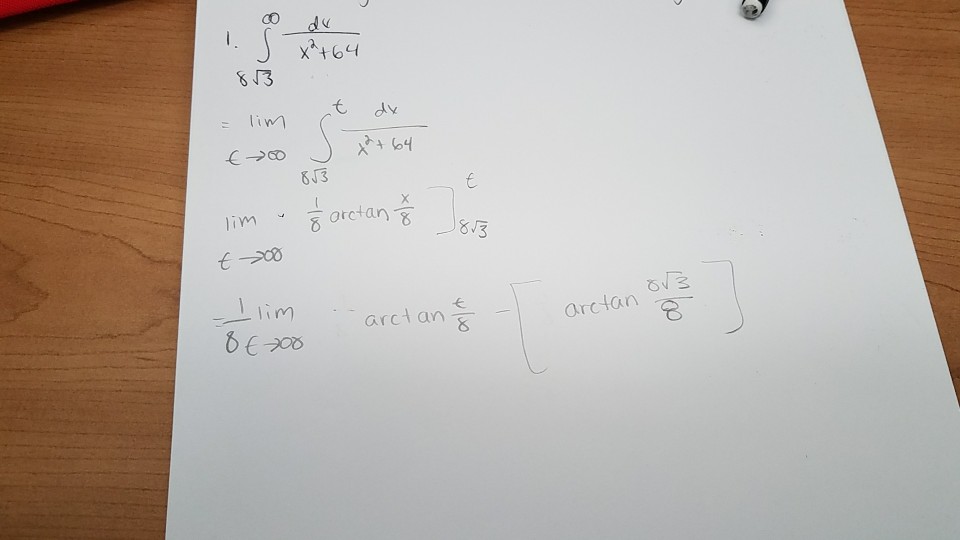 1. ∫_{8√3}^{∞} dx / (x²+64)
= lim_{t→∞} ∫_{8√3}^{t} dx / (x²+64)
lim_{t→∞} 1/8 arctan x/8 ]_{8√3}^{t}
= 1/8 lim_{t→∞} arctan t/8 - [ arctan 8√3/8 ]